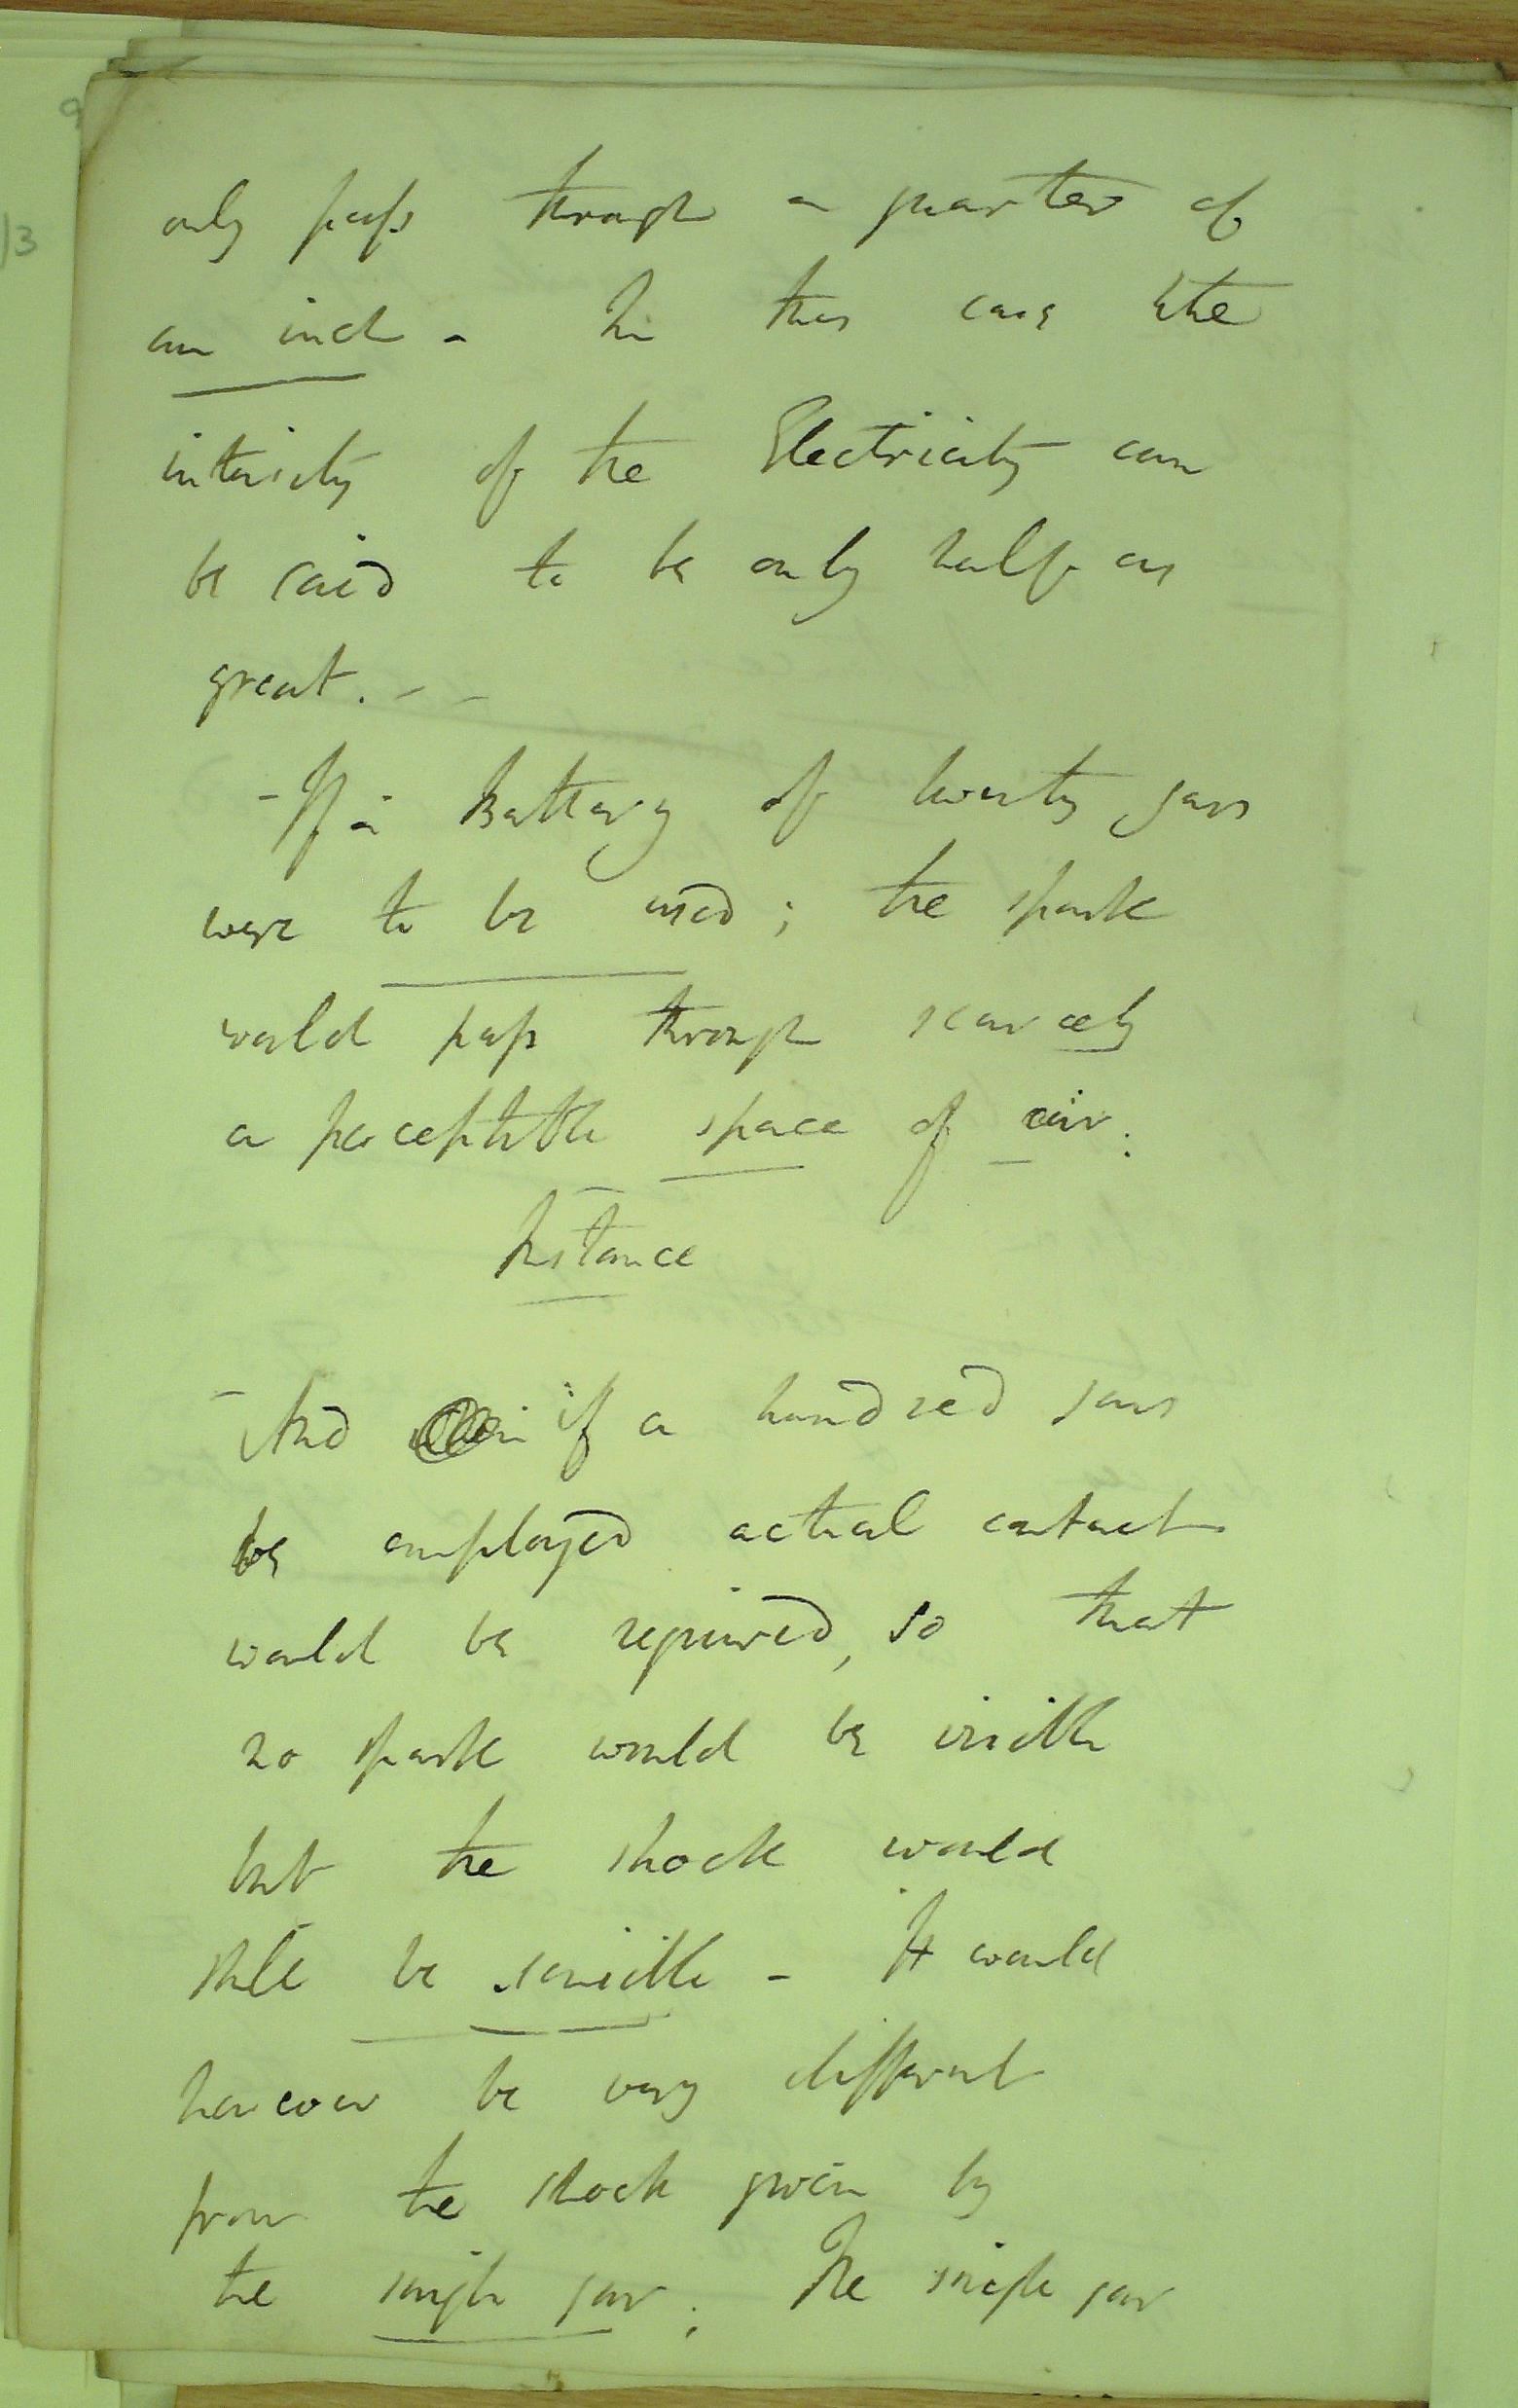 only pass through a quarter of
an inch - In this case the
intensity of the Electricity can
be said to be only half as
great. - -
- If a Battery of twenty jars
were to be used; the spark
would pass through scarcely
a perceptible space of air.
Instance
- And if a hundred jars
be employed actual contact
would be required, so that
no spark would be visible
but the shock would
still be sensible - It would
however be very different
from the shock given by
the single jar. The single jar